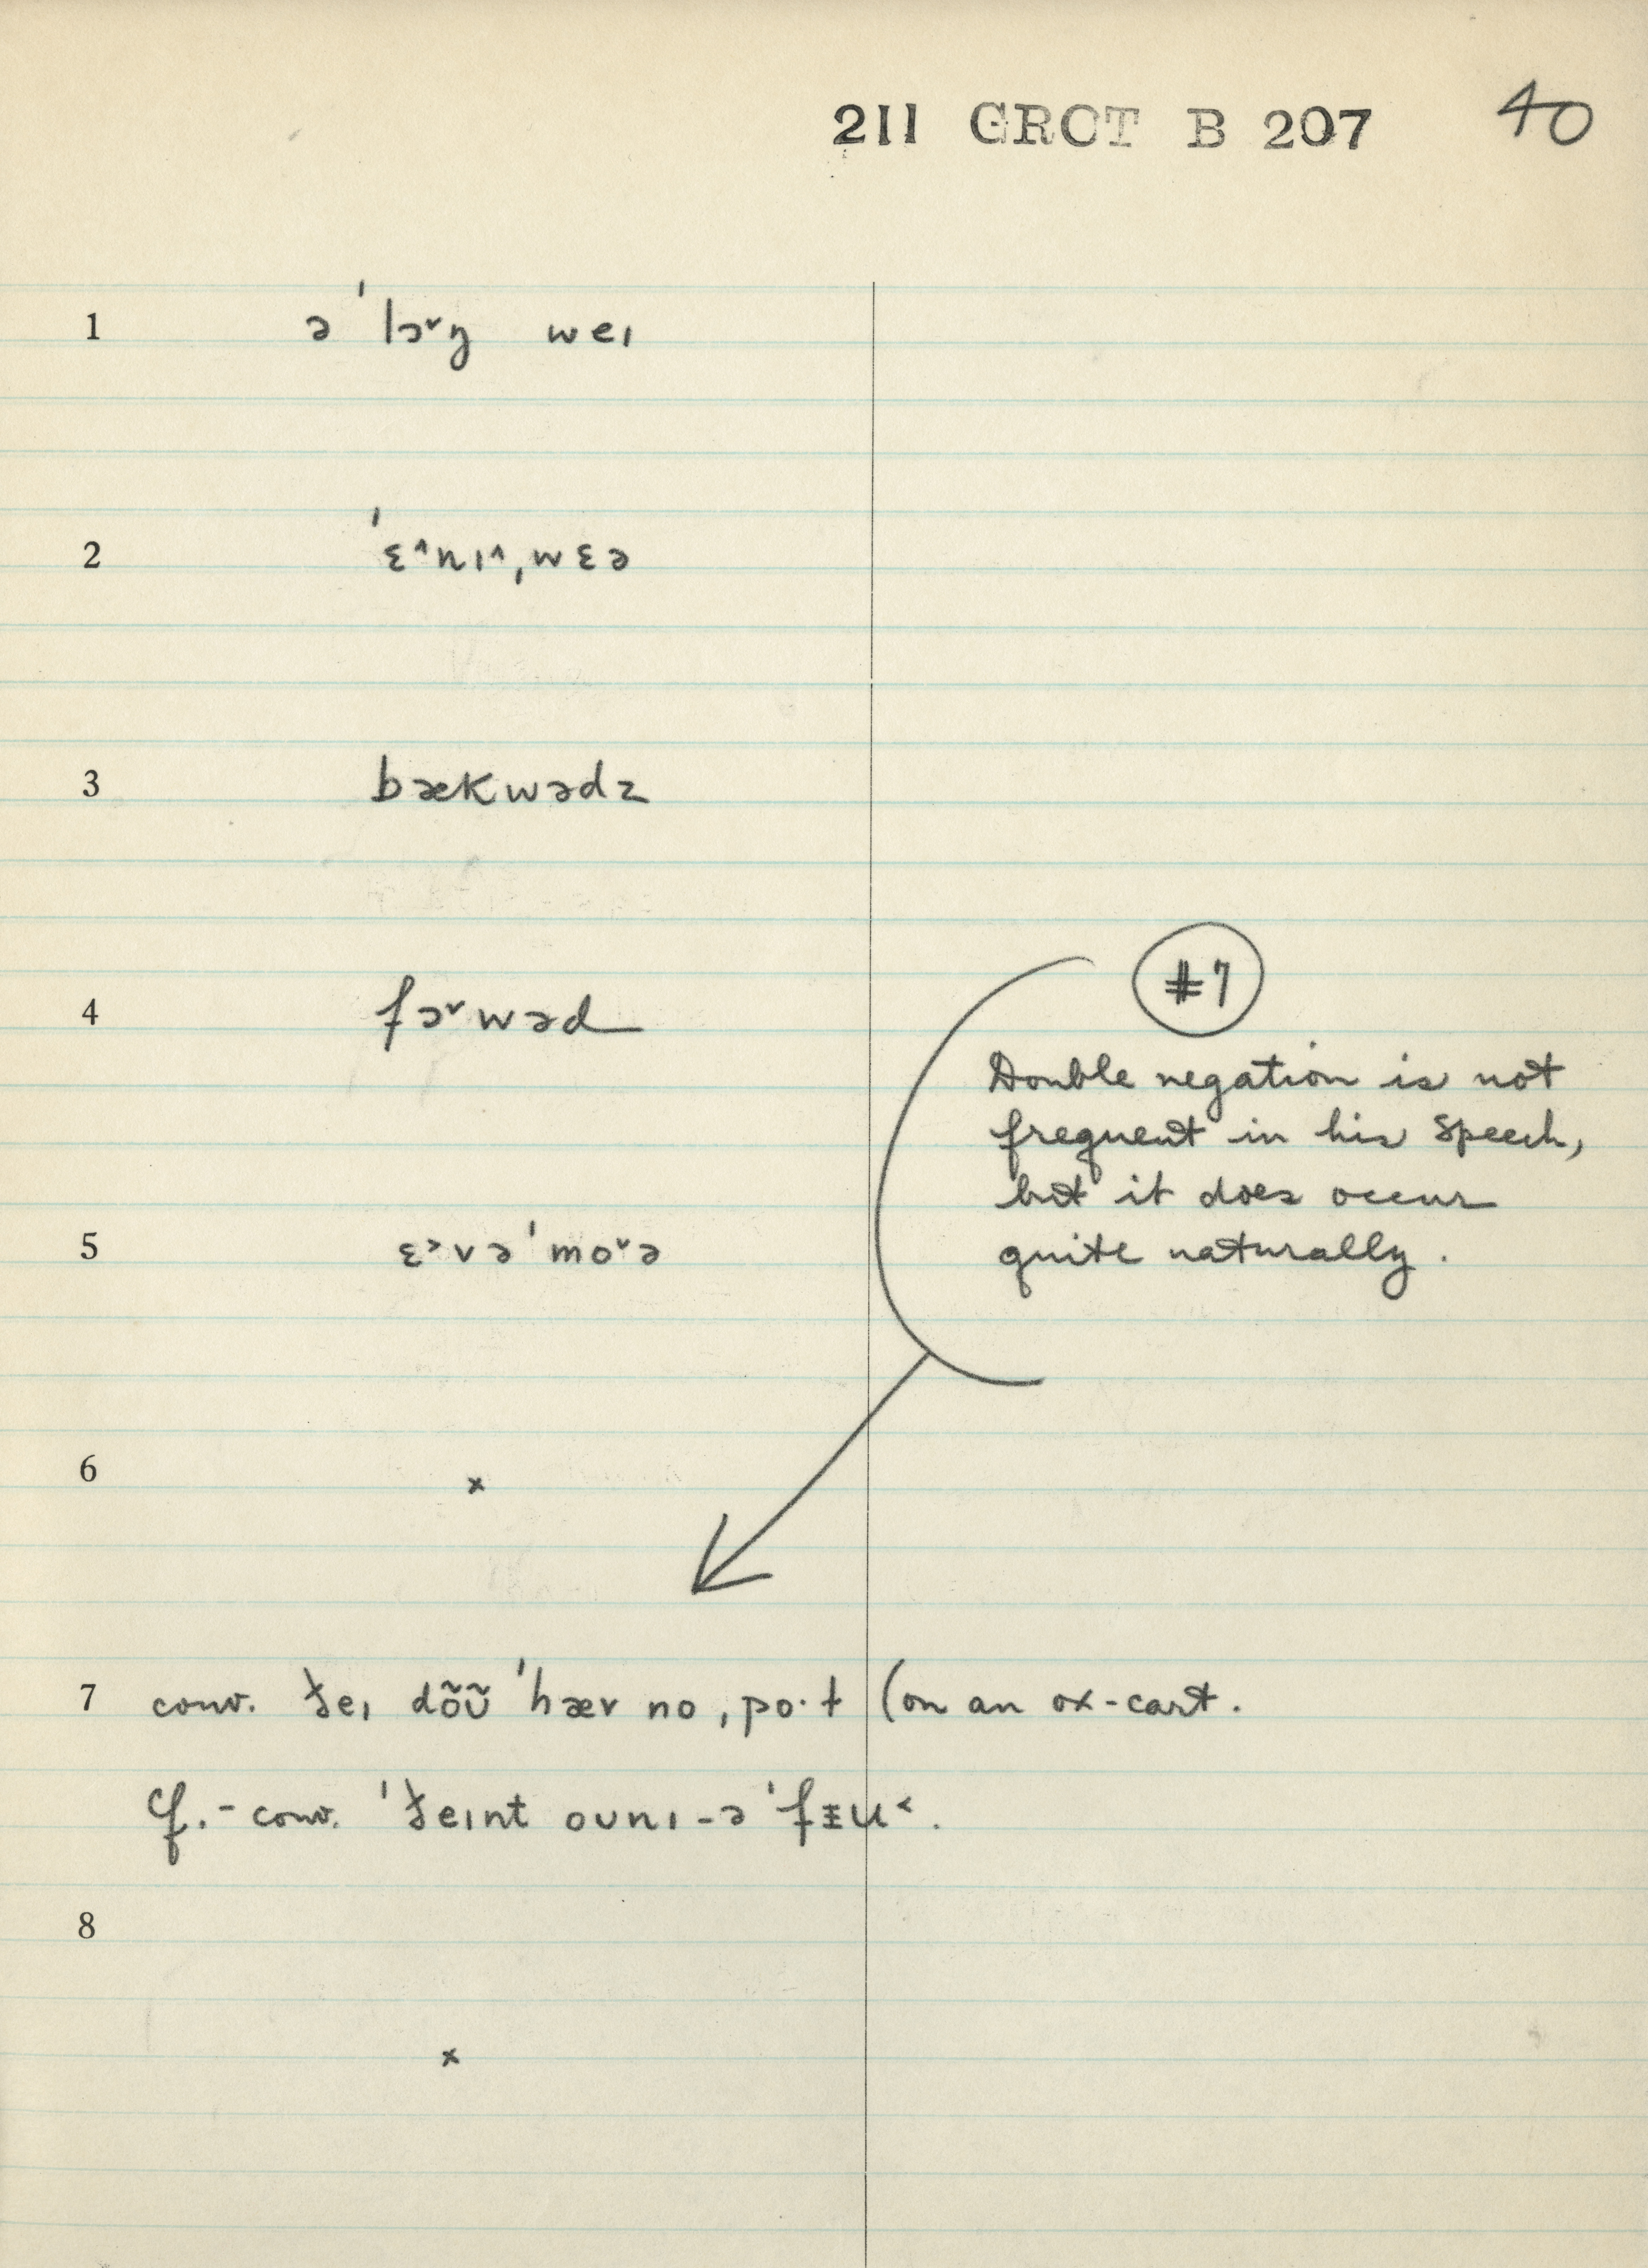 211 GROT B 207 40
1 ə ˈlɔ˅ŋ weɪ
2 ˈɛ^nɪ^ˌwɛə
3 bækwədz
4 fɔ˅wəd
#7
Double negation is not
frequent in his speech,
but it does occur
quite naturally.
5 ɛ˃vəˈmo˅ə
6 ×
7 conv. ðeɪ dõʊ̃ ˈhæv noˌpo·t (on an ox-cart.
Cf. - conv. ˈðeɪnt oʊnɪ-ə ˈfɪ̵u˂.
8
×